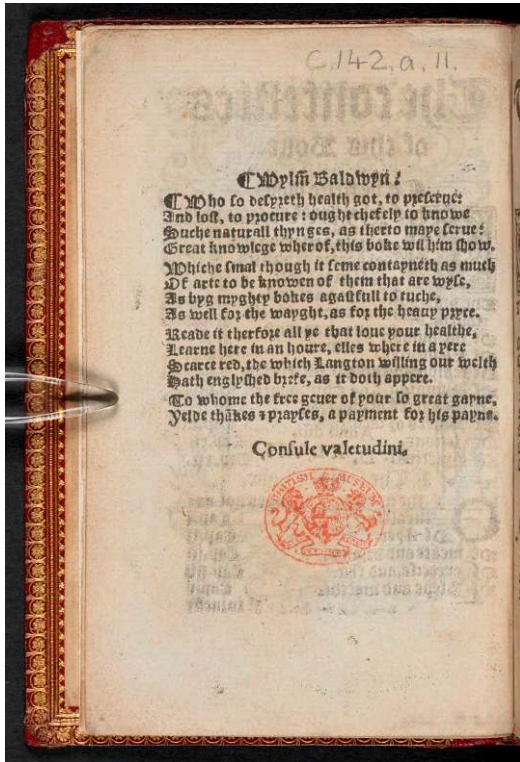 C.142.a.11.
❧Wylłm Baldwyn:
❧Who so desyreth health got, to preserue:
And lost, to procure: ought chefely to knowe
Suche naturall thynges, as therto maye serue:
Great knowlege wherof, this boke wil him show.
Whiche smal though it seme contayneth as much
Of arte to be knowen of them that are wyse,
As byg myghty bokes agastfull to tuche,
As well for the wayght, as for the heauy pryce.
Reade it therfore all ye that loue your healthe,
Learne here in an houre, elles where in a yere
Scarce red, the which Langton willing our welth
Hath englyshed brefe, as it doth appere.
To whome the free geuer of your so great gayne,
Yelde thākes & prayses, a payment for his payne.
Consule valetudini.
BRITISH MUSEUM